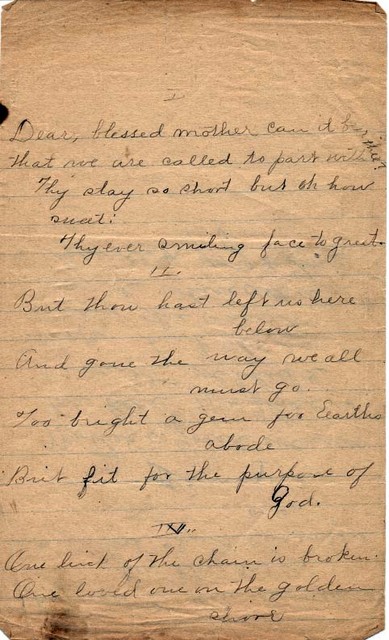 I
Dear, blessed mother can it be,
that we are called to part with thee?
Thy stay so short but oh how
sweet:
Thy ever smiling face to great.
II.
But thou hast left us here
below
And gone the way we all
must go.
Too bright a gem for Earths
abode
But fit for the purpose of
God.
III.
One link of the chain is broken.
One loved one on the golden
shore